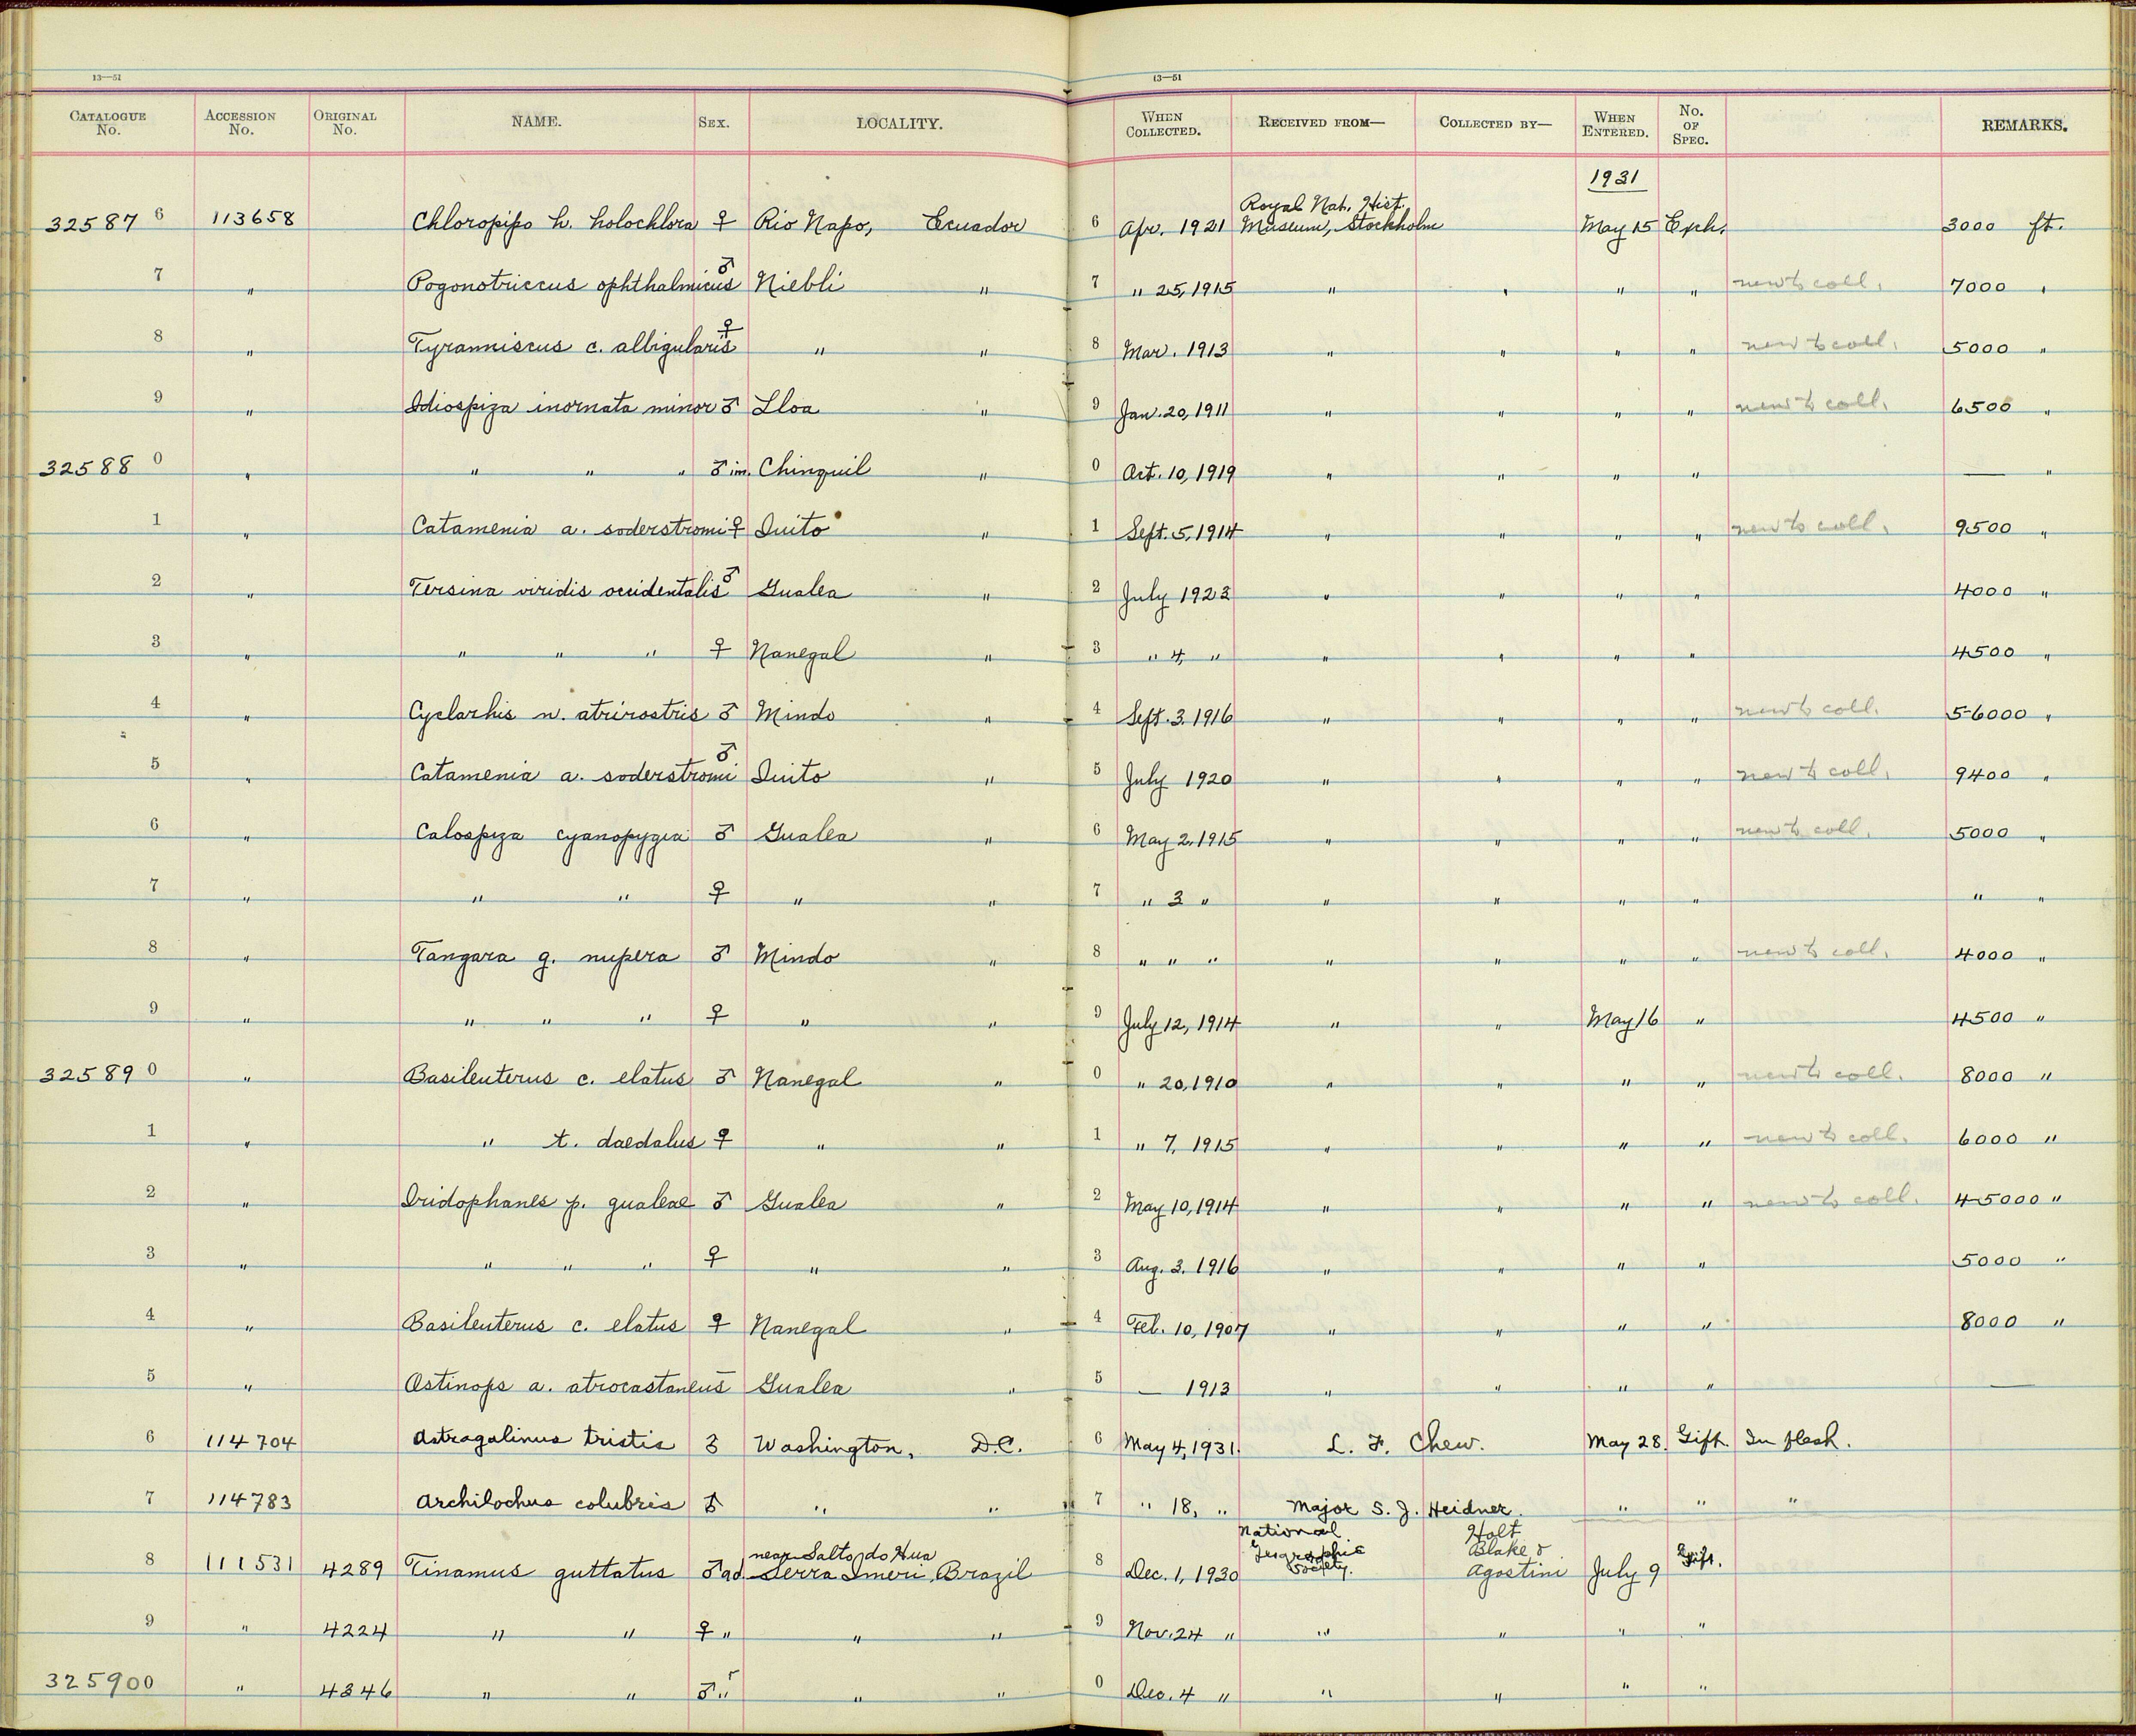 13—51 13—51
CATALOGUE No. ACCESSION No. ORIGINAL No. NAME. SEX. LOCALITY. WHEN COLLECTED. RECEIVED FROM— COLLECTED BY— WHEN ENTERED. No. OF SPEC. REMARKS.
1931
32587 6 113658 Chloropipo h. holochlora ♀ Rio Napo, Ecuador 6 Apr. 1921 Royal Nat. Hist. Museum, Stockholm May 15 Exch. 3000 ft.
7 " Pogonotriccus ophthalmicus ♂ Niebli " 7 " 25, 1915 " " " " new to coll. 7000 "
8 " Tyranniscus c. albigularis ♀ " " 8 Mar. 1913 " " " " new to coll. 5000 "
9 " Idiospiza inornata minor ♂ Lloa " 9 Jan. 20, 1911 " " " " new to coll. 6500 "
32588 0 " " " " ♂ im. Chinquil " 0 Oct. 10, 1919 " " " " — "
1 " Catamenia a. soderstromi ♀ Quito " 1 Sept. 5, 1914 " " " " new to coll. 9500 "
2 " Tersina viridis occidentalis ♂ Gualea " 2 July 1923 " " " " 4000 "
3 " " " " ♀ Nanegal " 3 " 4, " " " " " 4500 "
4 " Cyclarhis n. atrirostris ♂ Mindo " 4 Sept. 3. 1916 " " " " new to coll. 5-6000 "
5 " Catamenia a. soderstromi ♂ Quito " 5 July 1920 " " " " new to coll. 9400 "
6 " Calospiza cyanopygia ♂ Gualea " 6 May 2, 1915 " " " " new to coll. 5000 "
7 " " " ♀ " " 7 " 3 " " " " " " "
8 " Tangara g. nupera ♂ Mindo " 8 " " " " " " " new to coll. 4000 "
9 " " " " ♀ " " 9 July 12, 1914 " " May 16 " 4500 "
32589 0 " Basileuterus c. elatus ♂ Nanegal " 0 " 20, 1910 " " " " new to coll. 8000 "
1 " " t. daedalus ♀ " " 1 " 7, 1915 " " " " new to coll. 6000 "
2 " Iridophanes p. gualeae ♂ Gualea " 2 May 10, 1914 " " " " new to coll. 45000 "
3 " " " " ♀ " " 3 Aug. 3. 1916 " " " " 5000 "
4 " Basileuterus c. elatus ♀ Nanegal " 4 Feb. 10, 1907 " " " " 8000 "
5 " Ostinops a. atrocastaneus — Gualea " 5 — 1913 " " " " —
6 114704 Astragalinus tristis ♂ Washington, D.C. 6 May 4, 1931. L. F. Chew. May 28. Gift. In flesh.
7 114783 Archilochus colubris ♂ " " 7 " 18, " Major S. J. Heidner. " " "
8 111531 4289 Tinamus guttatus ♂ ad. near Salto do Hua Serra Imeri, Brazil 8 Dec. 1, 1930 National Geographic Society. Holt Blake & Agostini July 9 Gift.
9 " 4224 " " ♀ " " " 9 Nov. 24 " " " " "
325900 " 4346 " " ♂ " " " 0 Dec. 4 " " " " "